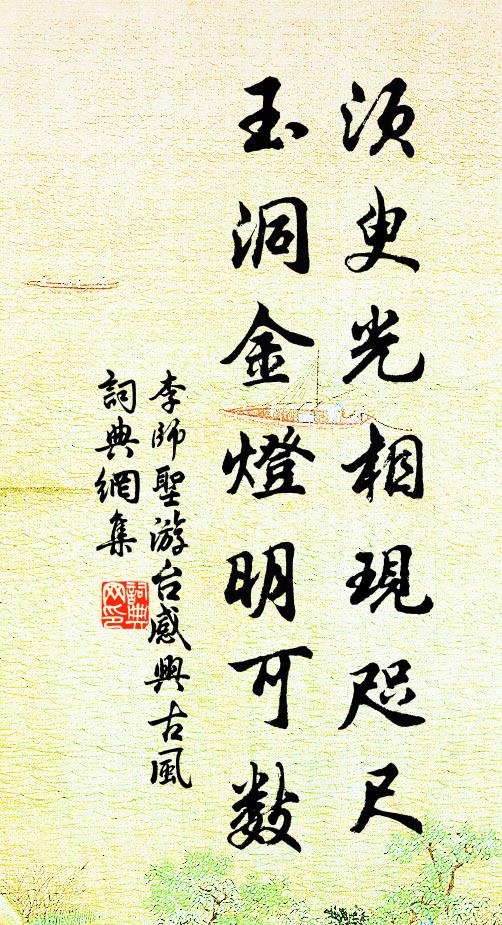 須臾光相現咫尺
玉洞金燈明可數
李師聖游台感興古風
詞典網集
詞典
网印